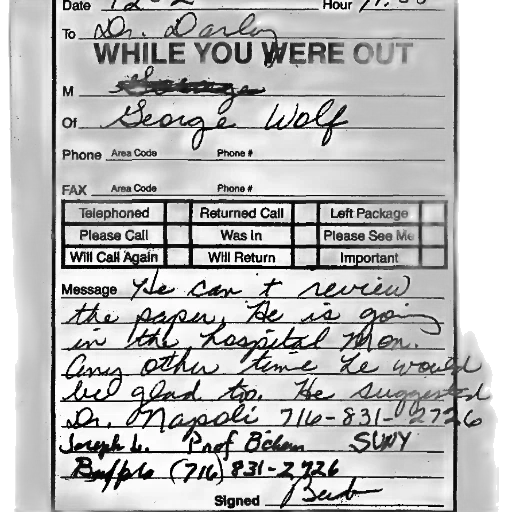 Date 12-2 Hour
To Dr. Darby
WHILE YOU WERE OUT
M
Of George Wolf
Phone Area Code Phone #
FAX Area Code Phone #
Telephoned Returned Call Left Package
Please Call Was In Please See Me
Will Call Again Will Return Important
Message He can't review
the paper. He is going
in the hospital Mon.
Any other time he would
be glad too. He suggested
Dr. Napoli 716-831-2726
Joseph L. Prof Bchem SUNY
Buffalo (716) 831-2726
Signed